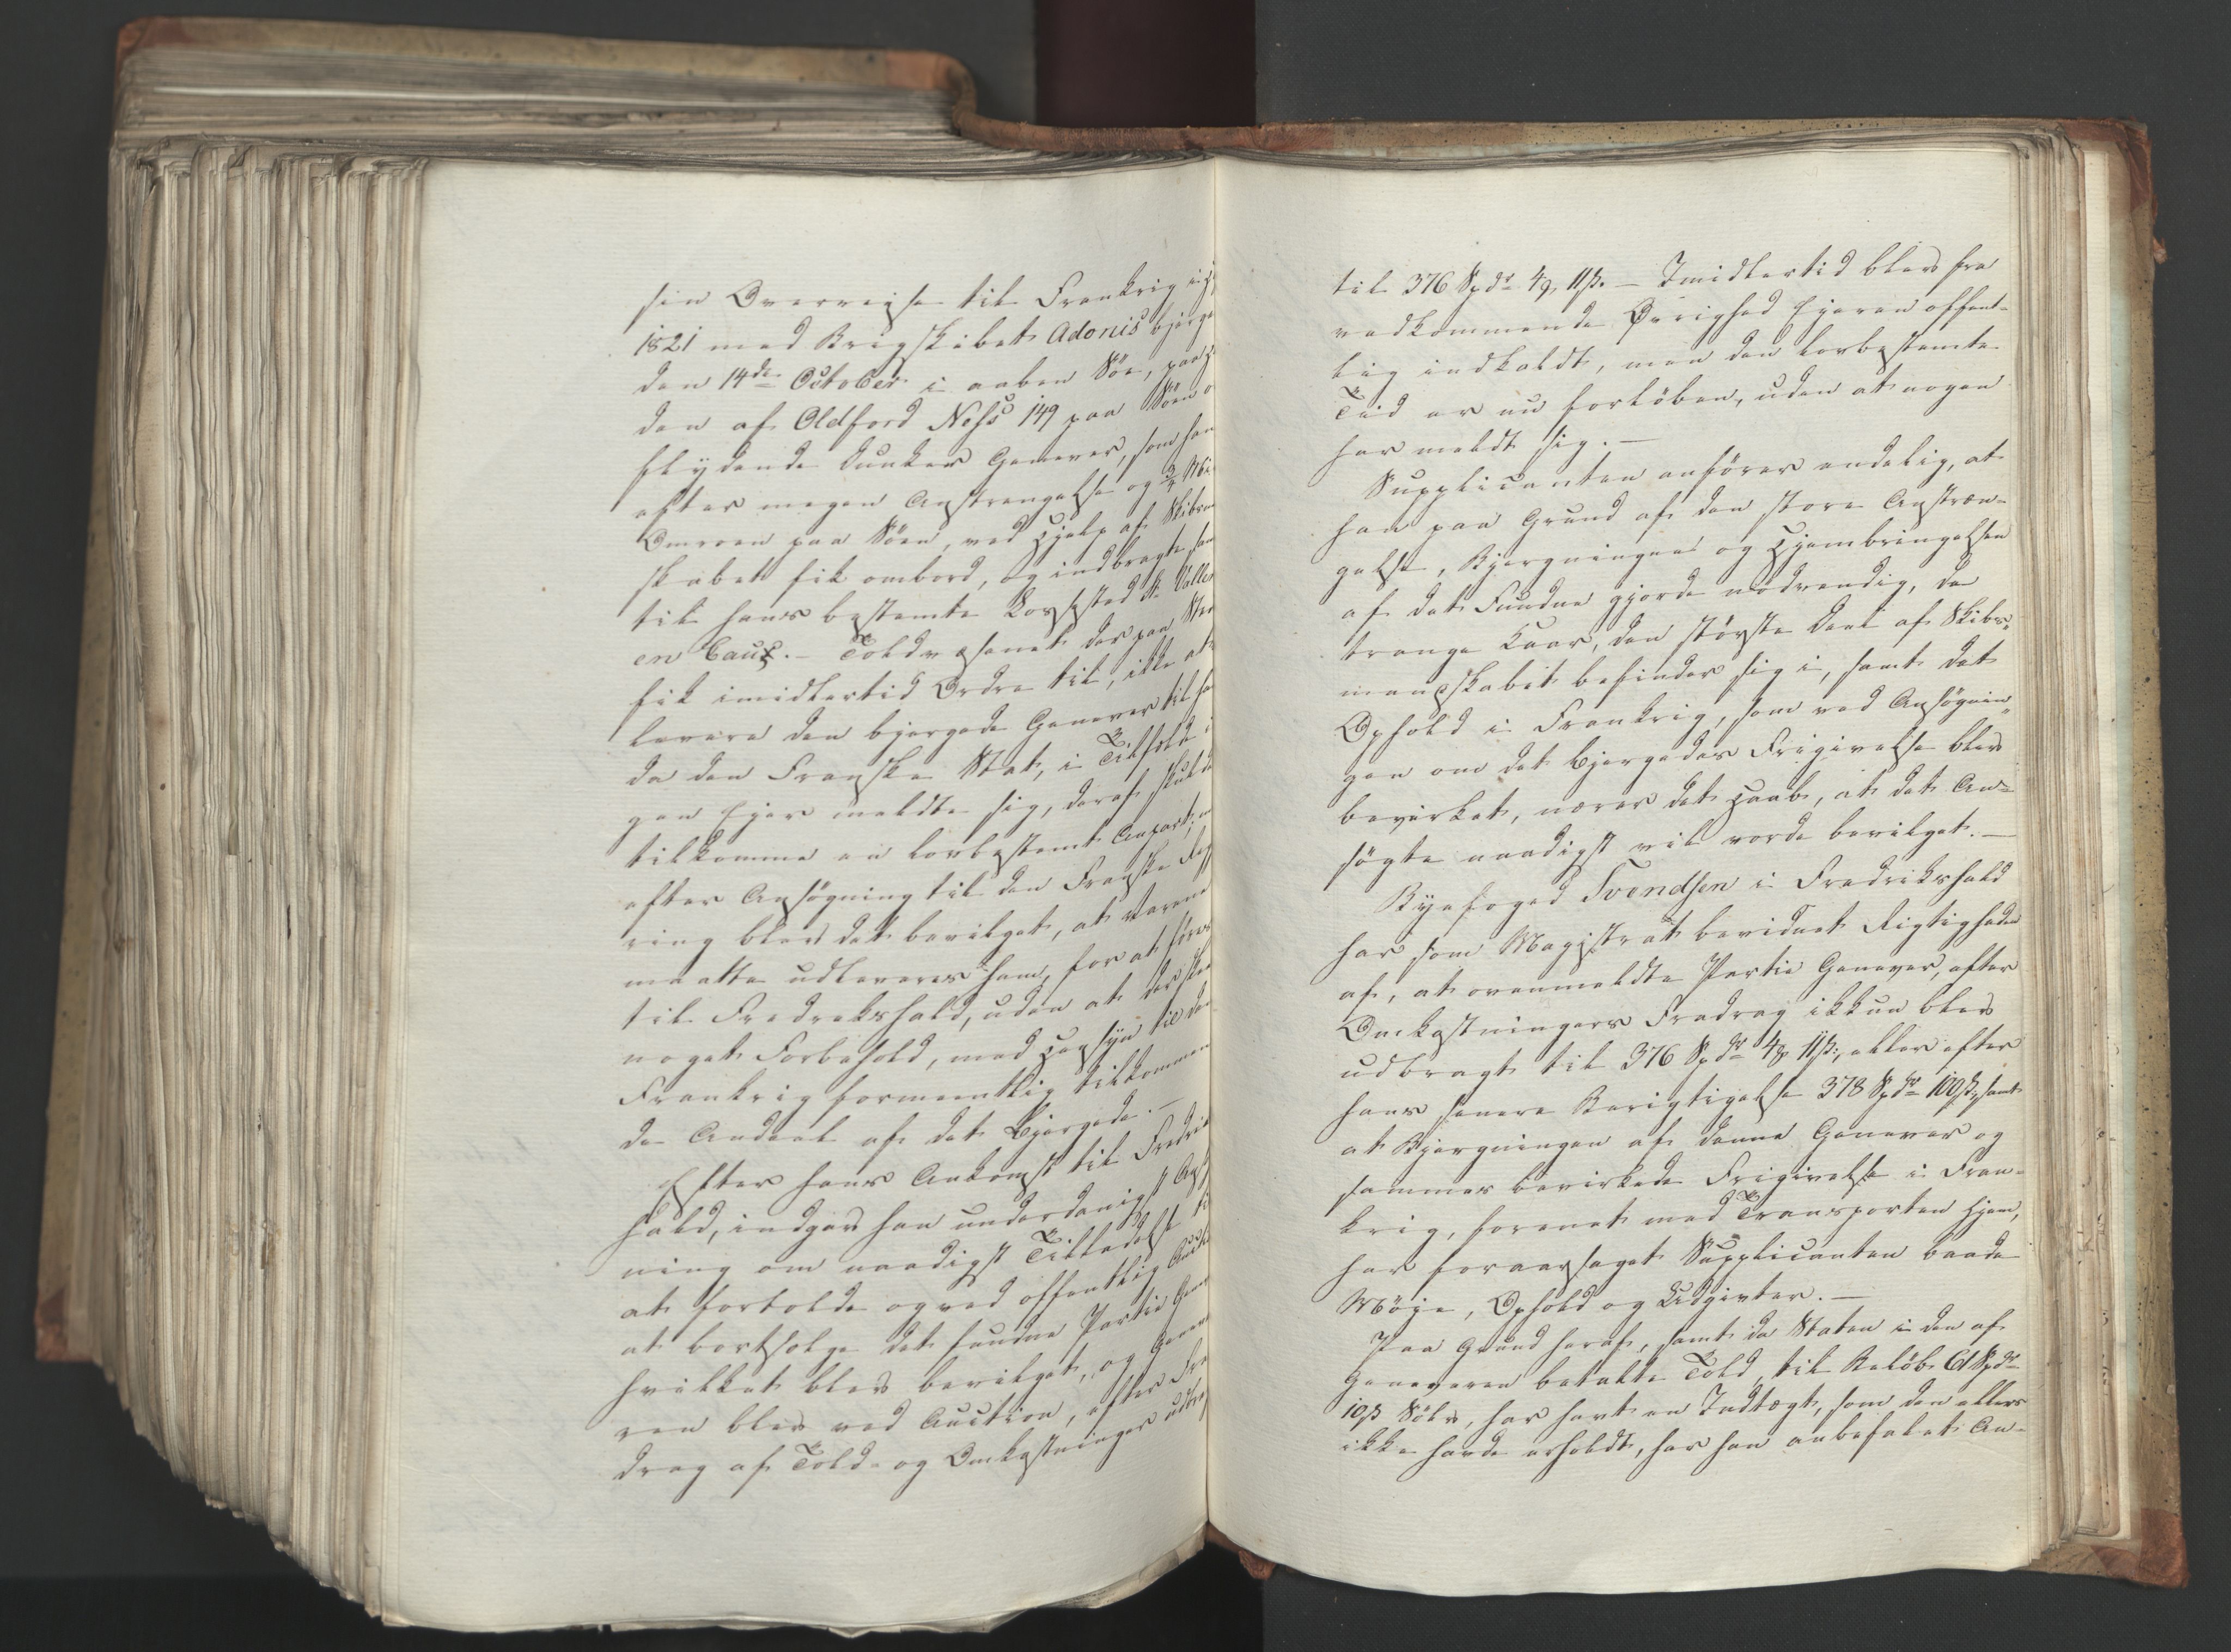 sin Overreise til Frankrig i
1821 med Brigskibet Adonis bjerge
den 14de October i aaben Søe,
den af Oldford Nefs 149 paa Søen
flydende Dunker Genever, som han
efter megen Anstrengelse og ¾ Mi
Omroen paa Søen, ved Hjelp af Skibsm
skabet fik ombord, og indbragte
til hans bestemte Lossested St Valler
en Caux. – Toldvæsenet der paa Ste
fik imidlertid Ordre til, ikke at
levere den bjergede Genever til ha
da den Franske Stat, i Tilfælde i
gen Ejer meldte sig, deraf skulde
tilkomme en lovbestemt Anpart; m
efter Ansøgning til den Franske Reg
ring blev det bevilget, at Varene
maatte udleveres ham, for at føres
til Fredrekshald, uden at der skee
noget Forbehold, med Hensyn til den
Frankrig formeentlig tilkommen
de Andeel af det Bjergede. –
Efter hans Ankomst til Fredrik
hald, indgav han underdanigst Ansø
ning om naadigst Tilladelse ti
at fortolde og ved offentlig Aucti
at bortsælge det fundne Partie Gene
hvilket blev bevilget, og Geneve
ren blev ved Auction, efter Fra
drag af Told- og Omkostninger udbrag
til 376 Spdr 4 11 ß. – Imidlertid blev fra
vedkommende Øvrighed Ejeren offent-
lig indkaldt, men den lovbestemte
Tiid er nu forløben, uden at nogen
har meldt sig. –
Supplicanten anfører endelig, at
han paa Grund af den store Anstræn-
gelse, Bjergningen og Hjembringelsen
af det Fundne gjorde nødvendig, de
trange Kaar, den største Deel af Skibs-
mandskabet befinder sig i, samt det
Ophold i Frankrig, som ved Ansøgnin-
gen om det Bjergedes Frigivelse blev
bevirket, nærer det Haab, at det An-
søgte naadigst vil vorde bevilget. –
Byefoged Svendsen i Fredrikshald
har som Magistrat bevidnet Rigtigheden
af, at ovenmeldte Partie Genever, efter
Omkostningers Fradrag ikkun blev
udbragt til 376 Spdr 4 11 ß, eller efter
hans senere Berigtigelse 378 Spdr 100 ß, samt
at Bjergningen af denne Genever og
sammes bevirkede Frigivelse i Fran-
krig, forenet med Transporten hjem,
har foraarsaget Supplicanten baade
Møje, Ophold og Udgivter. –
Paa Grund heraf, samt da Staten i den af
Geneveren betalte Told, til Beløb Spdr
10 ß Sølv, har havt en Indtægt, som den ellers
ikke havde erholdt, har han anbefalet An-